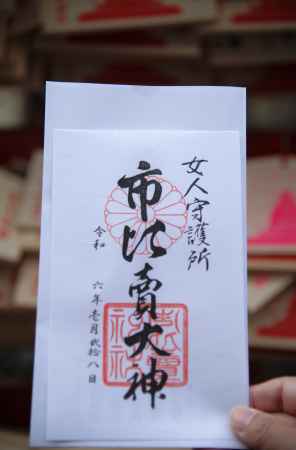 女人守護所
市比賣大神
令和
六年壱月弐拾八日